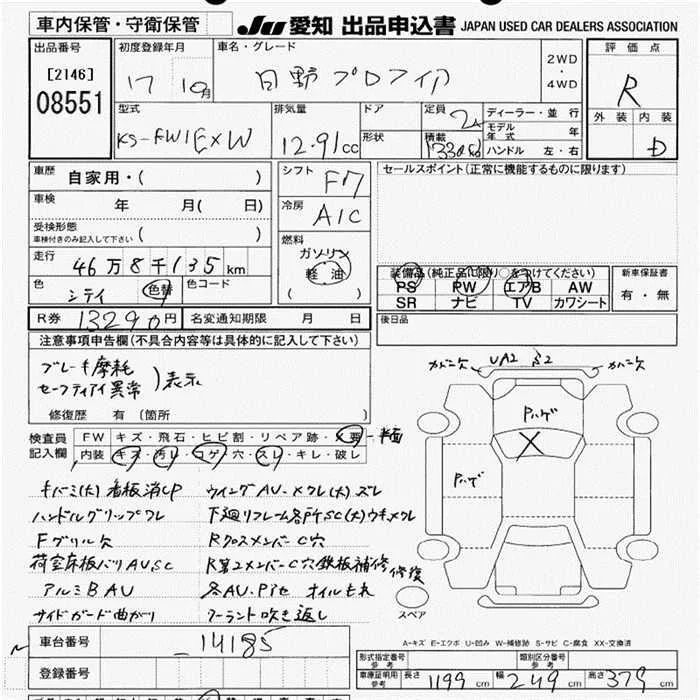 車内保管・守衛保管
JU 愛知 出品申込書 JAPAN USED CAR DEALERS ASSOCIATION
出品番号
[2146]
08551
初度登録年月
17 10月
車名・グレード
日野プロフィア
2WD
・
4WD
評価点
R
外装 内装
D
型式
KS-FW1EXW
排気量
12.91cc
ドア
形状
定員 2人
積載 13300kg
ディーラー・並行
モデル年式 年
ハンドル 左・右
車歴 自家用・( )
車検 年 月( 日)
受検形態
車検付きのみ記入して下さい ( )
走行 46万8千135km
色 シテイ 色替 色コード
シフト F7
冷房 A/C
燃料
ガソリン
軽油
( )
セールスポイント(正常に機能するものに限ります)
装備品(純正品に限り○をつけてください)
PS PW エアB AW
SR ナビ TV カワシート
新車保証書
有・無
R券 13290円 名変通知期限 月 日
後日品
注意事項申告欄(不具合内容等は具体的に記入して下さい)
ブレーキ摩耗
セーフティアイ異常 )表示
修復歴 有(箇所 )
検査員記入欄
FW キズ・飛石・ヒビ割・リペア跡・X要 - 半面
内装 キズ・汚レ・コゲ・穴・スレ・キレ・破レ
カバー欠 UA2 S2 カバー欠
Pハゲ
X
Pハゲ
キバミ(大)看板消しP ウイングAU.メクレ(大)ズレ
ハンドルグリップワレ 下廻リフレーム各所SC(大)ウキ.メクレ
Fグリル欠 RクロスメンバーC穴
荷室床板バリAUSC R第2メンバーC穴鉄板補修 修復
アルミBAU 各AU.Pアセ オイルもれ
サイドガード曲がり クーラント吹き返し
スペア
車台番号 -14185
登録番号
A-キズ E-エクボ U-凹み W-補修跡 S-サビ C-腐食 XX-交換済
形式指定番号 参考
類別区分番号 参考
車庫証明用 参考 長さ 1199cm 幅 249cm 高さ 379cm